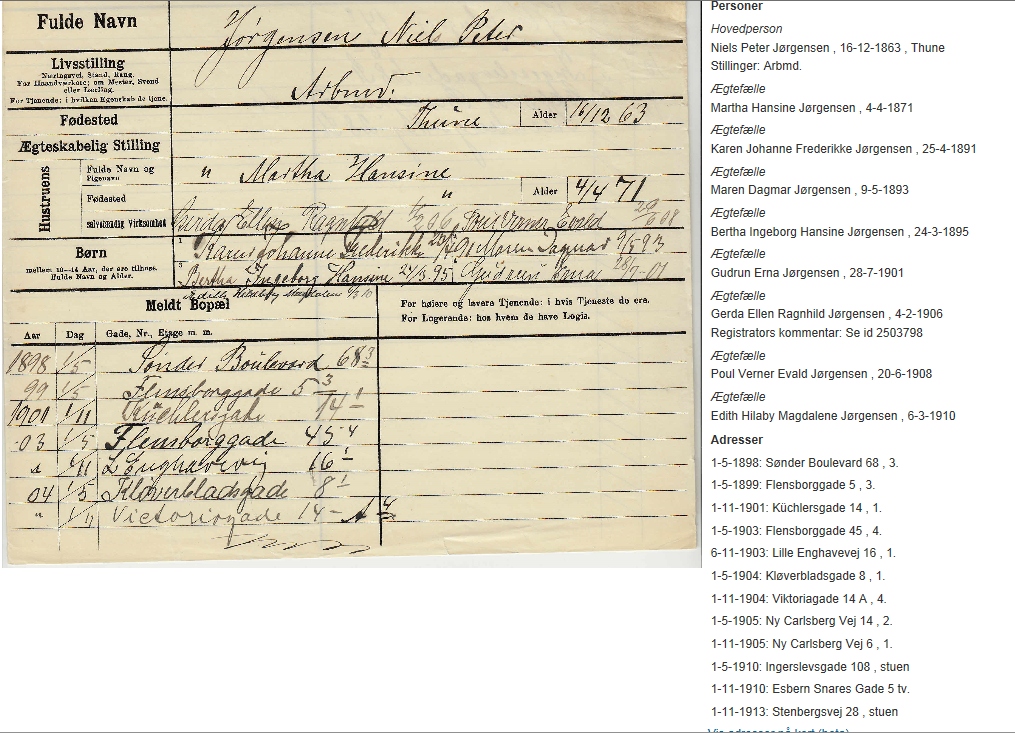 Fulde Navn
Jørgensen Niels Peter
Livsstilling
Næringsvej, Stand, Rang.
For Haandværkere: om Mester, Svend
eller Lærling.
For Tjenende: i hvilken Egenskab de tjene.
Arbmd.
Fødested
Thune
Alder 16/12 63
Ægteskabelig Stilling
Hustruens
Fulde Navn og
Pigenavn
" Martha Hansine
Fødested
"
Alder 4/4 71
selvstændig Virksomhed
Gerda Ellen Ragnhild 4/2 06 Poul Verner Evald
Børn
mellem 10—14 Aar, der ere tilhuse.
Fulde Navn og Alder.
1 Karen Johanne Frederikke Maren Dagmar 9/5 93
3 Bertha Ingeborg Hansine 24/3 95 Gudrun Erna 28/7-01
Edith Hilaby Magdalene 6/3 10
Meldt Bopæl
For højere og lavere Tjenende: i hvis Tjeneste de ere.
For Logerende: hos hvem de have Logis.
Aar Dag Gade, Nr., Etage m. m.
1898 1/5 Sønder Boulevard 68 3
99 1/5 Flensborggade 5 3
1901 1/11 Küchlersgade 14 1
03 1/5 Flensborggade 45 4
" /11 L Enghavevej 16 1
04 1/5 Kløverbladsgade 8 1
" 1/11 Victoriagade 14 A 4
Personer
Hovedperson
Niels Peter Jørgensen , 16-12-1863 , Thune
Stillinger: Arbmd.
Ægtefælle
Martha Hansine Jørgensen , 4-4-1871
Ægtefælle
Karen Johanne Frederikke Jørgensen , 25-4-1891
Ægtefælle
Maren Dagmar Jørgensen , 9-5-1893
Ægtefælle
Bertha Ingeborg Hansine Jørgensen , 24-3-1895
Ægtefælle
Gudrun Erna Jørgensen , 28-7-1901
Ægtefælle
Gerda Ellen Ragnhild Jørgensen , 4-2-1906
Registrators kommentar: Se id 2503798
Ægtefælle
Poul Verner Evald Jørgensen , 20-6-1908
Ægtefælle
Edith Hilaby Magdalene Jørgensen , 6-3-1910
Adresser
1-5-1898: Sønder Boulevard 68 , 3.
1-5-1899: Flensborggade 5 , 3.
1-11-1901: Küchlersgade 14 , 1.
1-5-1903: Flensborggade 45 , 4.
6-11-1903: Lille Enghavevej 16 , 1.
1-5-1904: Kløverbladsgade 8 , 1.
1-11-1904: Viktoriagade 14 A , 4.
1-5-1905: Ny Carlsberg Vej 14 , 2.
1-11-1905: Ny Carlsberg Vej 6 , 1.
1-5-1910: Ingerslevsgade 108 , stuen
1-11-1910: Esbern Snares Gade 5 tv.
1-11-1913: Stenbergsvej 28 , stuen